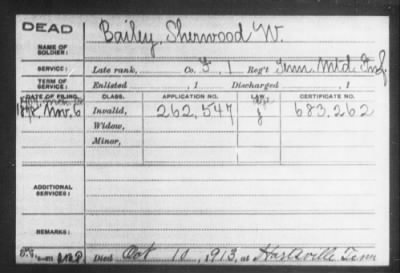 DEAD
NAME OF SOLDIER: Bailey, Sherwood W.
SERVICE: Late rank, Co. F, 1 Reg't Tenn. Mtd. Inf.
TERM OF SERVICE: Enlisted , 1 Discharged , 1
DATE OF FILING. CLASS. APPLICATION NO. LAW. CERTIFICATE NO.
Nov. 6 Invalid, 262,547 683.262
Widow,
Minor,
ADDITIONAL SERVICES:
REMARKS:
Died Oct 10, 1913, at Hartsville Tenn